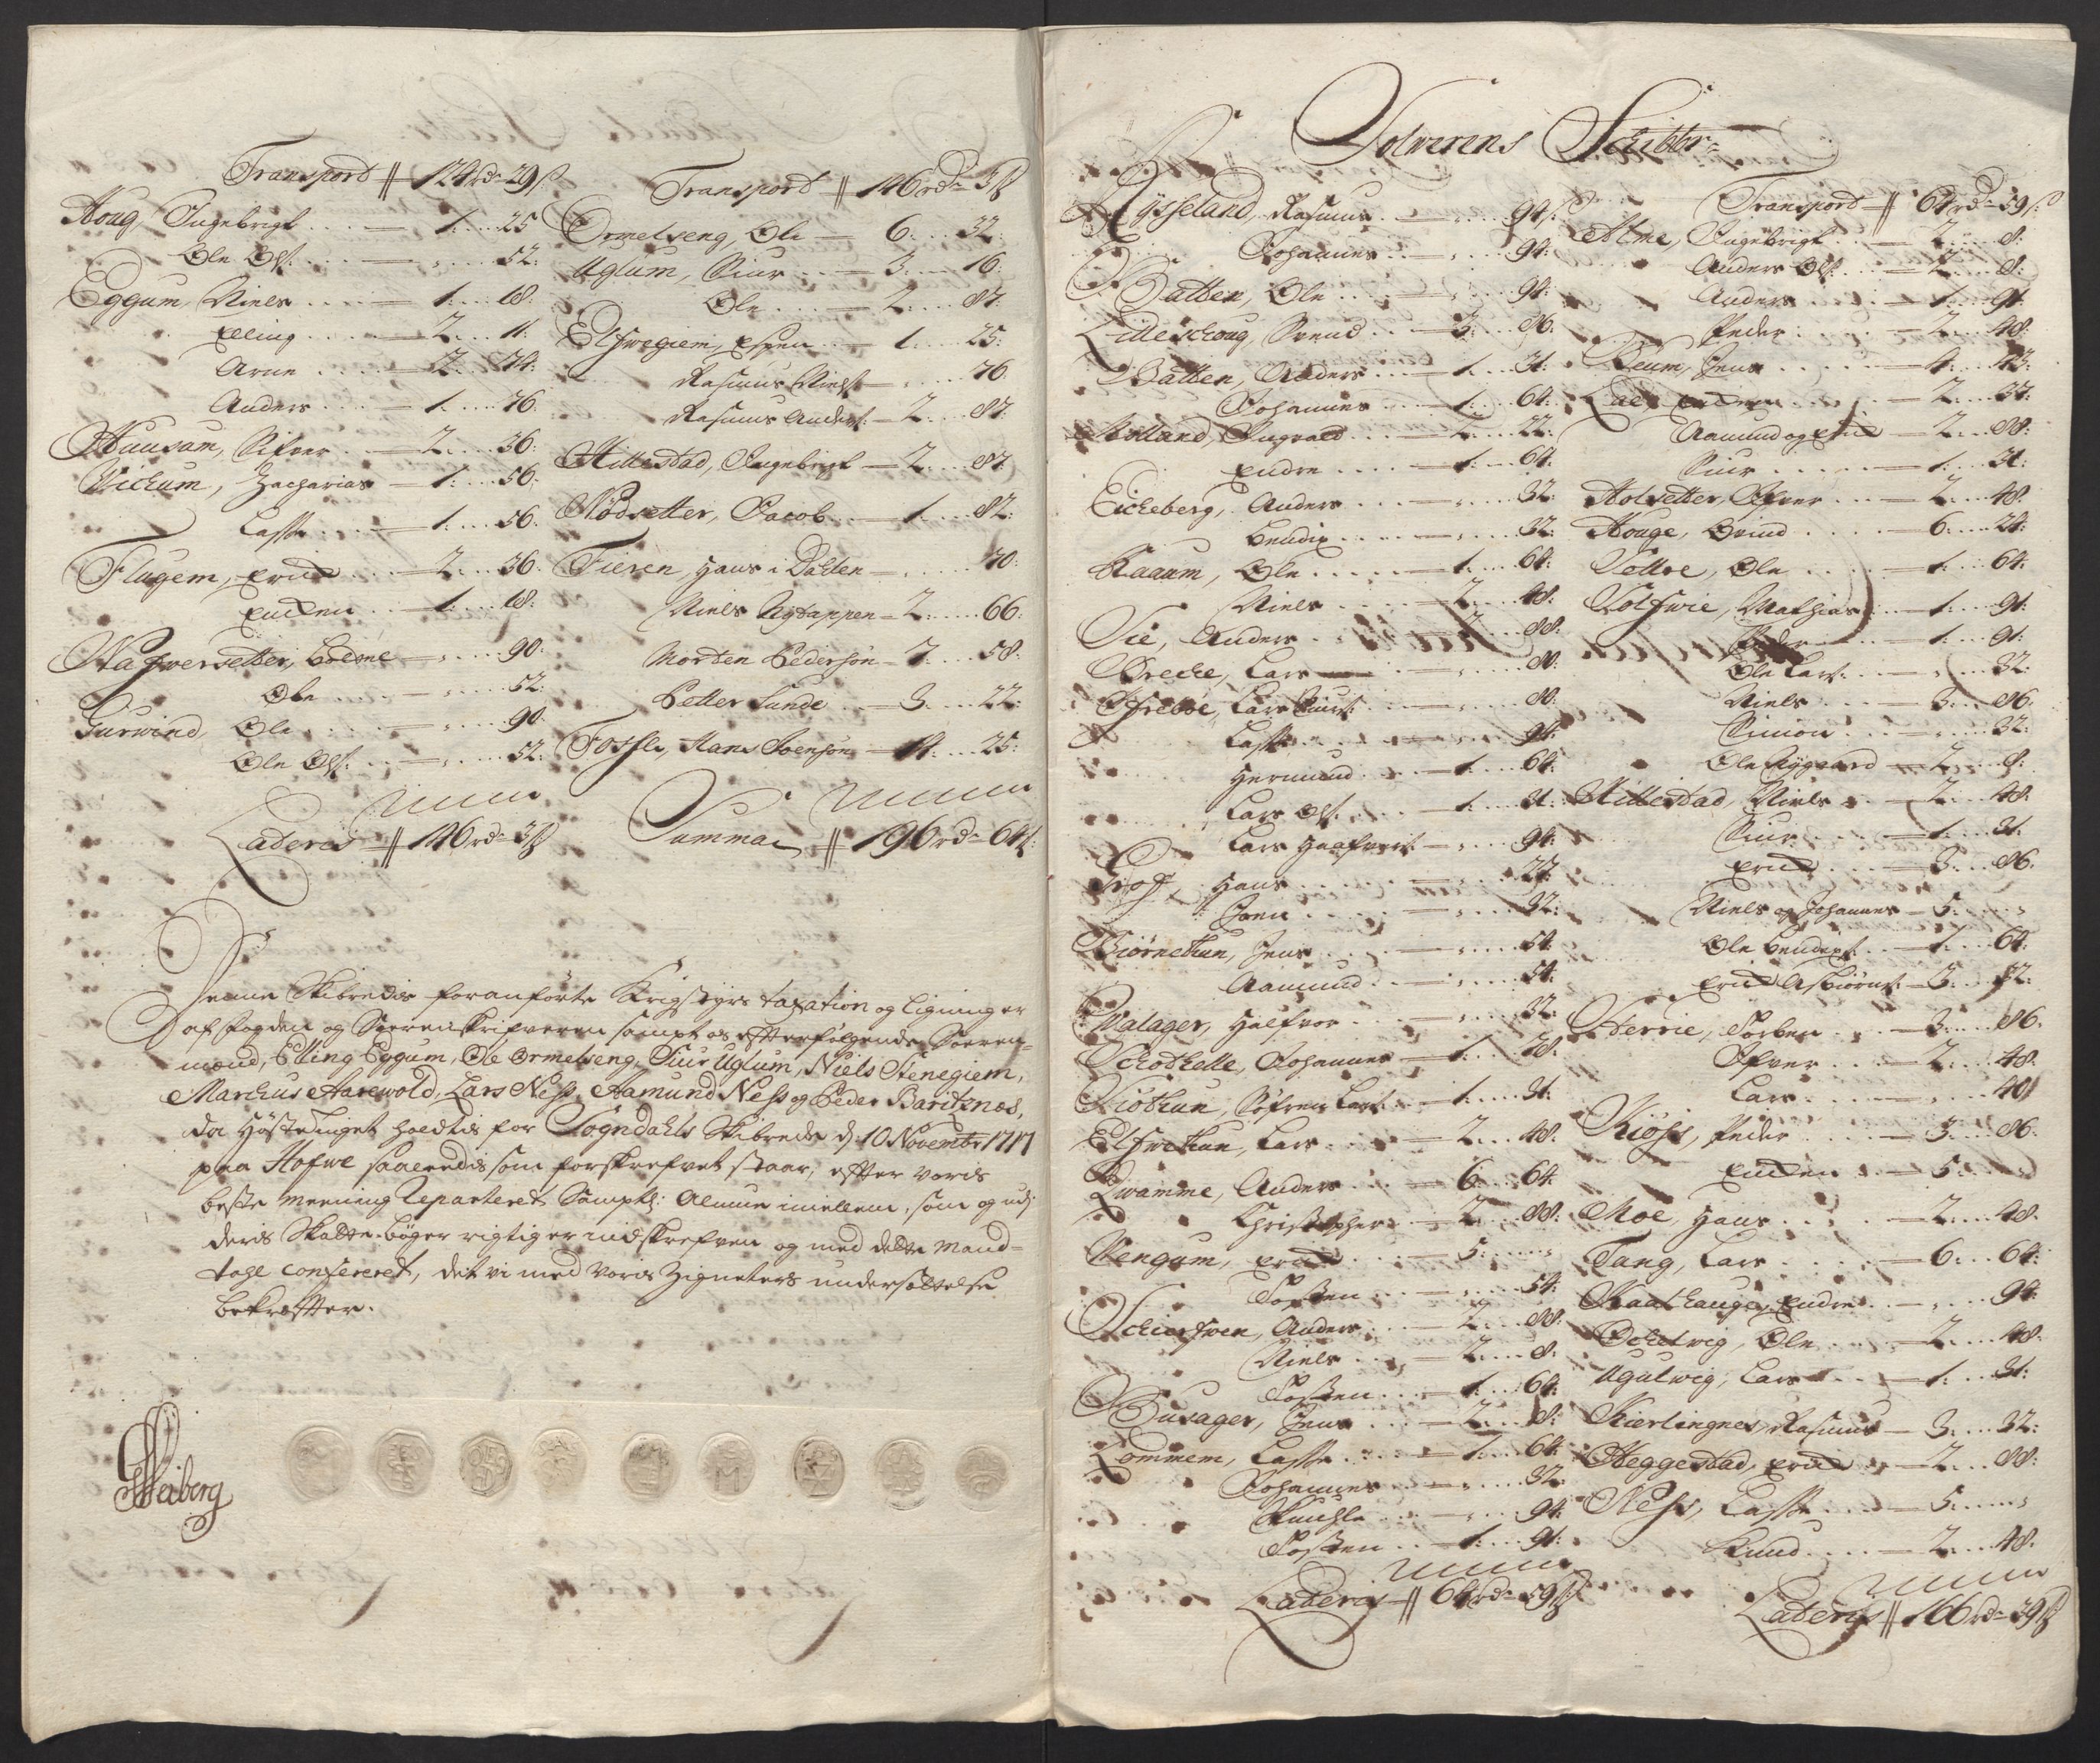 Transport 124rd 29ß
Houg, Ingebrigt 1. 25
Ole Ols. 52.
Eggum, Niels 1. 18.
Elling 2. 11.
Arne 2. 74.
Anders 1. 76.
Huusum, Sifver 2. 36.
Wichum, Zacharias 1. 56.
Lasse 1. 56.
Flugem, Erich 2. 36.
Endre 1. 18.
Nafversetter, 90.
Ole 52.
Gurvind, Ole 90.
Ole Ols. 52.
Lateris 146rd 3ß
Transport 146rd 3ß
Ormelseng, Ole 6. 32.
Uglum, Siur 3. 16.
Ole 2. 87.
Elfwegiem, Espen 1. 25.
Rasmus Niels. 76.
Rasmus Anders. 2. 87.
Hillestad, Ingebrigt 2. 87.
Nødsetter, Jacob 1. 82.
Fieren, Hans i Dalden 70.
Niels Nystappen 2. 66.
Morten Pedersøn 7. 58.
Petter Sunde 3. 22.
Fossle, Hans Ivensøn 14. 25.
Summa 196rd 64ß
Denne Skibredis foranførte Krigstyrs taxation og Ligning er
af fogden og Sorenskrifveren sampt os efterfølgende Soren-
mænd, Elling Eggum, Ole Ormelseng, Siur Uglum, Niels Stenegiem,
Marchus Aarewold, Lars Ness, Aamund Ness og Peder Baritznes,
da Høsttinget holdtis for Sogndahls Skibrede d. 10 Novembr 1717
paa Hofwe saaledis som forskrefvet staar, efter voris
beste meening Reparteret Samptl. Almue imellem, som og udj
deris Skatte-bøger rigtig er indskrefven og med dette Mand-
tahl confereret, det vi med voris Zigneters undersettelse
bekræfter.
Leiberg
Solverens Schibbr.
Rysseland, Rasmus 94ß
Johannes 94.
Batten, Ole 94.
Lilleschoug, Svend 3. 86.
Batten, Anders 1. 31.
Johannes 1. 64.
Molland, Ingvald 2. 22.
Endre 1. 64.
Eicheberg, Anders 32.
Bendix 32.
Raaum, Ole 1. 64.
Niels 2. 48.
Sie, Anders 2. 88.
Breche, Lars 80.
Ofrebøe, Lars Siurs. 80.
Lasse 94.
Hermund 1. 64.
Lars Ols. 1. 31.
Lars Haafvers. 94.
Hans 22.
Joen 32.
Biørnetun, Jens 54.
Aamund 54.
Valager, Halfvor 32.
Schothelle, Johannes 1. 78.
Niøthun, Søfren Lars. 1. 31.
Elfvethun, Lars 2. 48.
Qvamme, Anders 6. 64.
Christopher 2. 88.
Vengum, Erich 5.
Tosten 54.
Schierfven, Anders 2. 88.
Niels 2. 8.
Tosten 1. 64.
Husager, Jens 2. 8.
Lommem, Lasse 1. 64.
Johannes 32.
94.
Tosten 1. 91.
Lateris 64rd 59ß
Transport 64rd 59ß
Alme, Ingebrigt 2. 8.
Anders Ols. 2. 8.
Anders 1. 91.
Peder 2. 48.
Beum, Jens 4. 43.
Endre 2. 37.
Aamund og Erich 2. 88.
Siur 1. 31.
Holsetter, Ifver 2. 48.
Houge, Svend 6. 24.
Tollee, Ole 1. 64.
Solfwie, Mathias 1. 91.
Peder 1. 91.
Ole Lars. 32.
Niels 3. 86.
Simon 32.
Ole Nygaard 2. 8.
Hillestad, Niels 2. 48.
Siur 1. 31.
Erich 3. 86.
Niels og Johannes 5.
Ole Bendixs. 1. 64.
Erich Asbiørns. 3. 32.
Herrie, Torben 3. 86.
Ifver 2. 48.
Lars 40
Kiøss, Peder 3. 86.
Endre 5.
Moe, Hans 2. 48.
Tang, Lars 6. 64.
Kaathauge, Endre 94.
Ochelvig, Ole 2. 48.
Ugulwig, Lars 1. 31.
Kierlingnes, Rasmus 3. 32.
Heggestad, Erich 2. 88.
Ness, Lasse 5.
Knud 2. 48.
Lateris 166rd 39ß